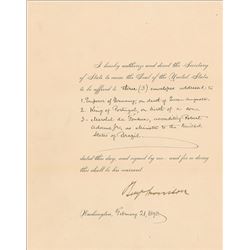 I hereby authorize and direct the Secretary
of State to cause the Seal of the United States
to be affixed to three (3) envelopes addressed to
1. Emperor of Germany, on death of Queen Augusta.
2. King of Portugal, on birth of a son.
3 - Marshal da Fonseca, accrediting Robert
Adams Jr. as Minister to the United
States of Brazil.
dated this day, and signed by me: and for so doing
this shall be his warrant.
Benj Harrison
Washington, February 21, 1890.